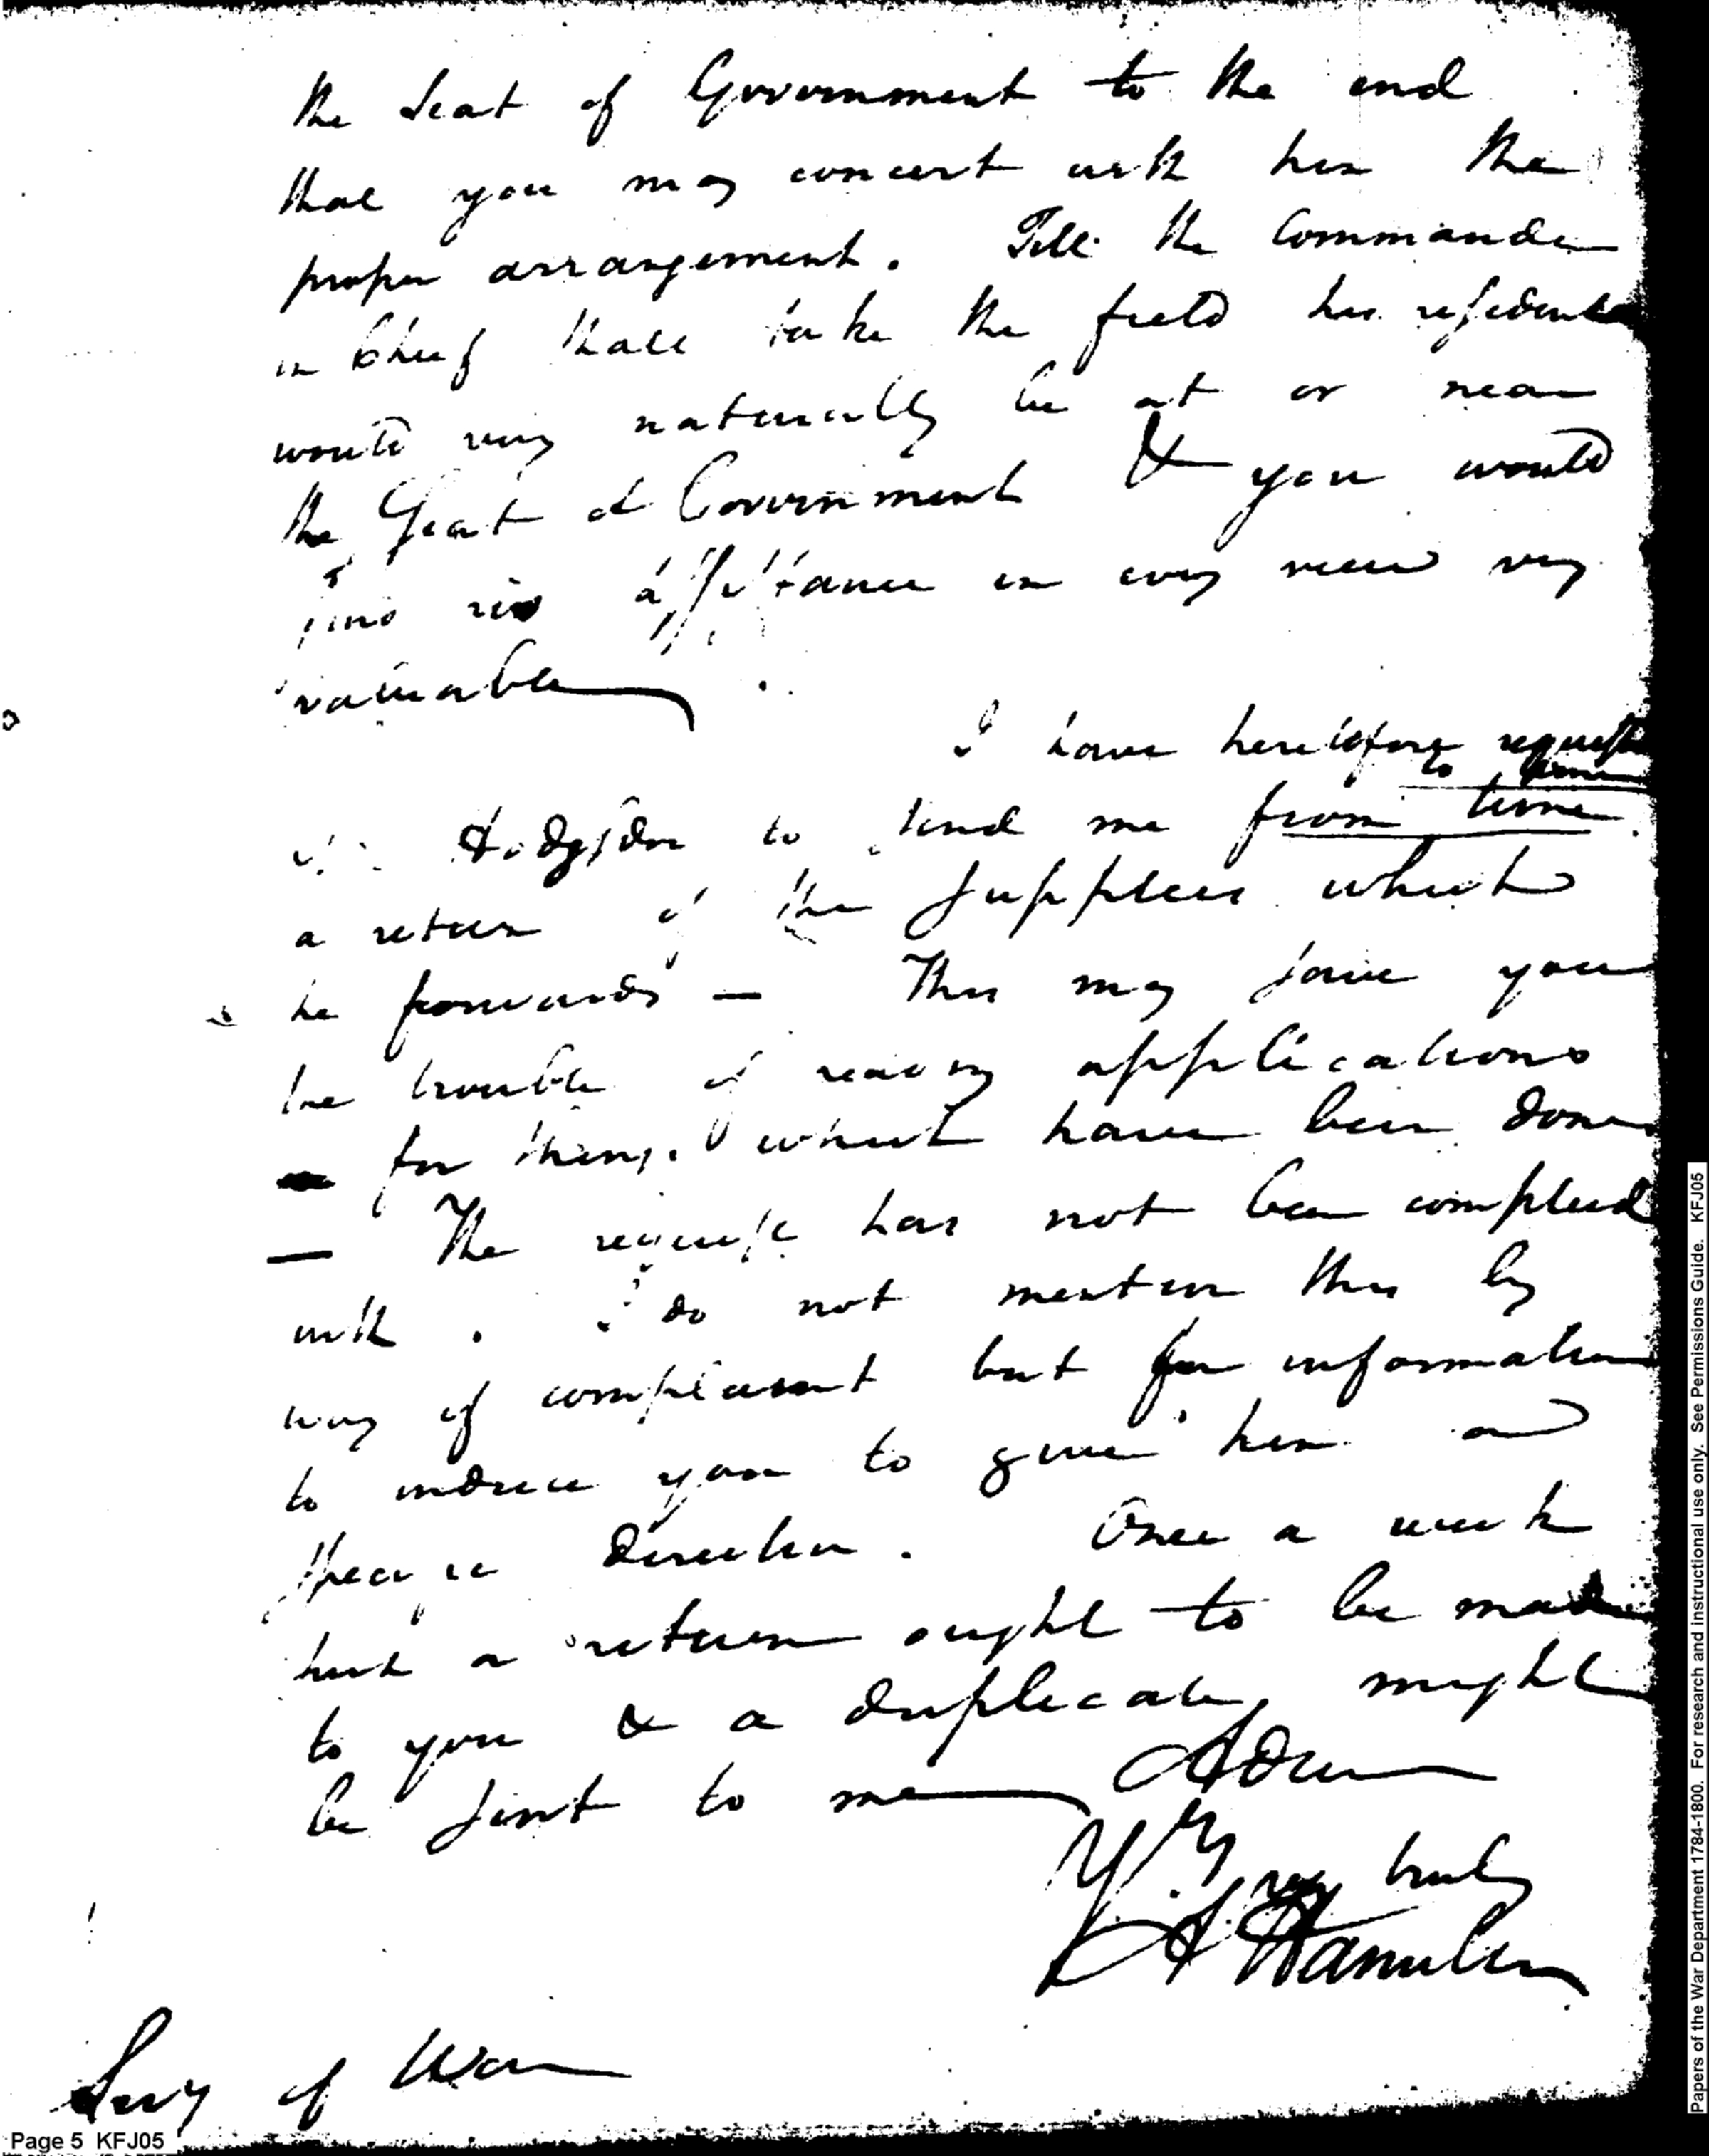 the Seat of Government to the end
that you may concert with him the
proper arrangement. Till the Commander
in Chief shall take the field his residence
would very naturally be at or near
the Seat of Government & you would
find his assistance in every view very
valuable.
I have heretofore request
to time
Hodgsdon to send me from time
a return of the supplies which
he forwards — This may save you
the trouble of applications
for things which have been done
— The request has not been complied
with. I do not mention this by
way of complaint but for information
to induce you to give him a
direction. Once a week
such a return ought to be made
to you & a duplicate might
be sent to me Adieu
Yrs. very truly
A Hamilton
Secy of War
Page 5 KFJ05
Papers of the War Department 1784-1800. For research and instructional use only. See Permissions Guide. KFJ05